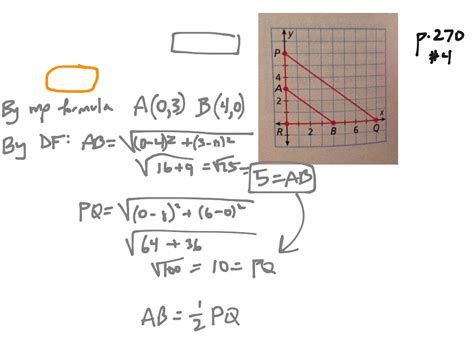 p.270
#4
y
P
A
2
R
2
B
6
Q
x
By mp formula A(0,3) B(4,0)
By DF: AB=√(0-4)²+(3-0)²
√16+9 = √25 =
5=AB
PQ=√(0-8)²+(6-0)²
√64+36
√100 = 10 = PQ
AB = 1/2 PQ